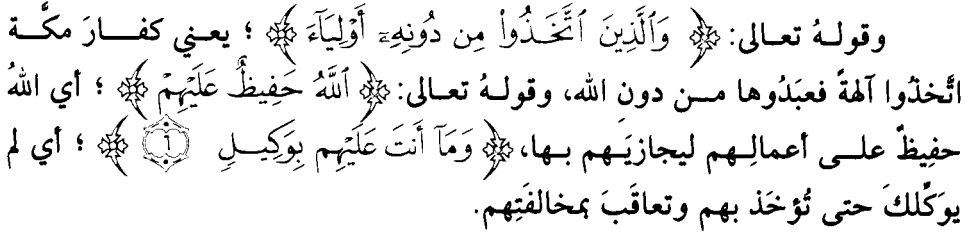 وقولهُ تعالى: ﴿ وَٱلَّذِينَ ٱتَّخَذُواْ مِن دُونِهِۦٓ أَوْلِيَآءَ ﴾ ؛ يعني كفارَ مكَّة
اتَّخذُوا آلهةً فعبَدُوها من دونِ الله، وقولهُ تعالى: ﴿ ٱللَّهُ حَفِيظٌ عَلَيْهِمْ ﴾ ؛ أي اللهُ
حفِيظٌ على أعمالِهم ليجازيَهم بها، ﴿ وَمَآ أَنتَ عَلَيْهِم بِوَكِيلٍ ٦ ﴾ ؛ أي لم
يوَكِّلكَ حتى تُؤخَذ بهم وتعاقَبَ بمخالفَتِهم.